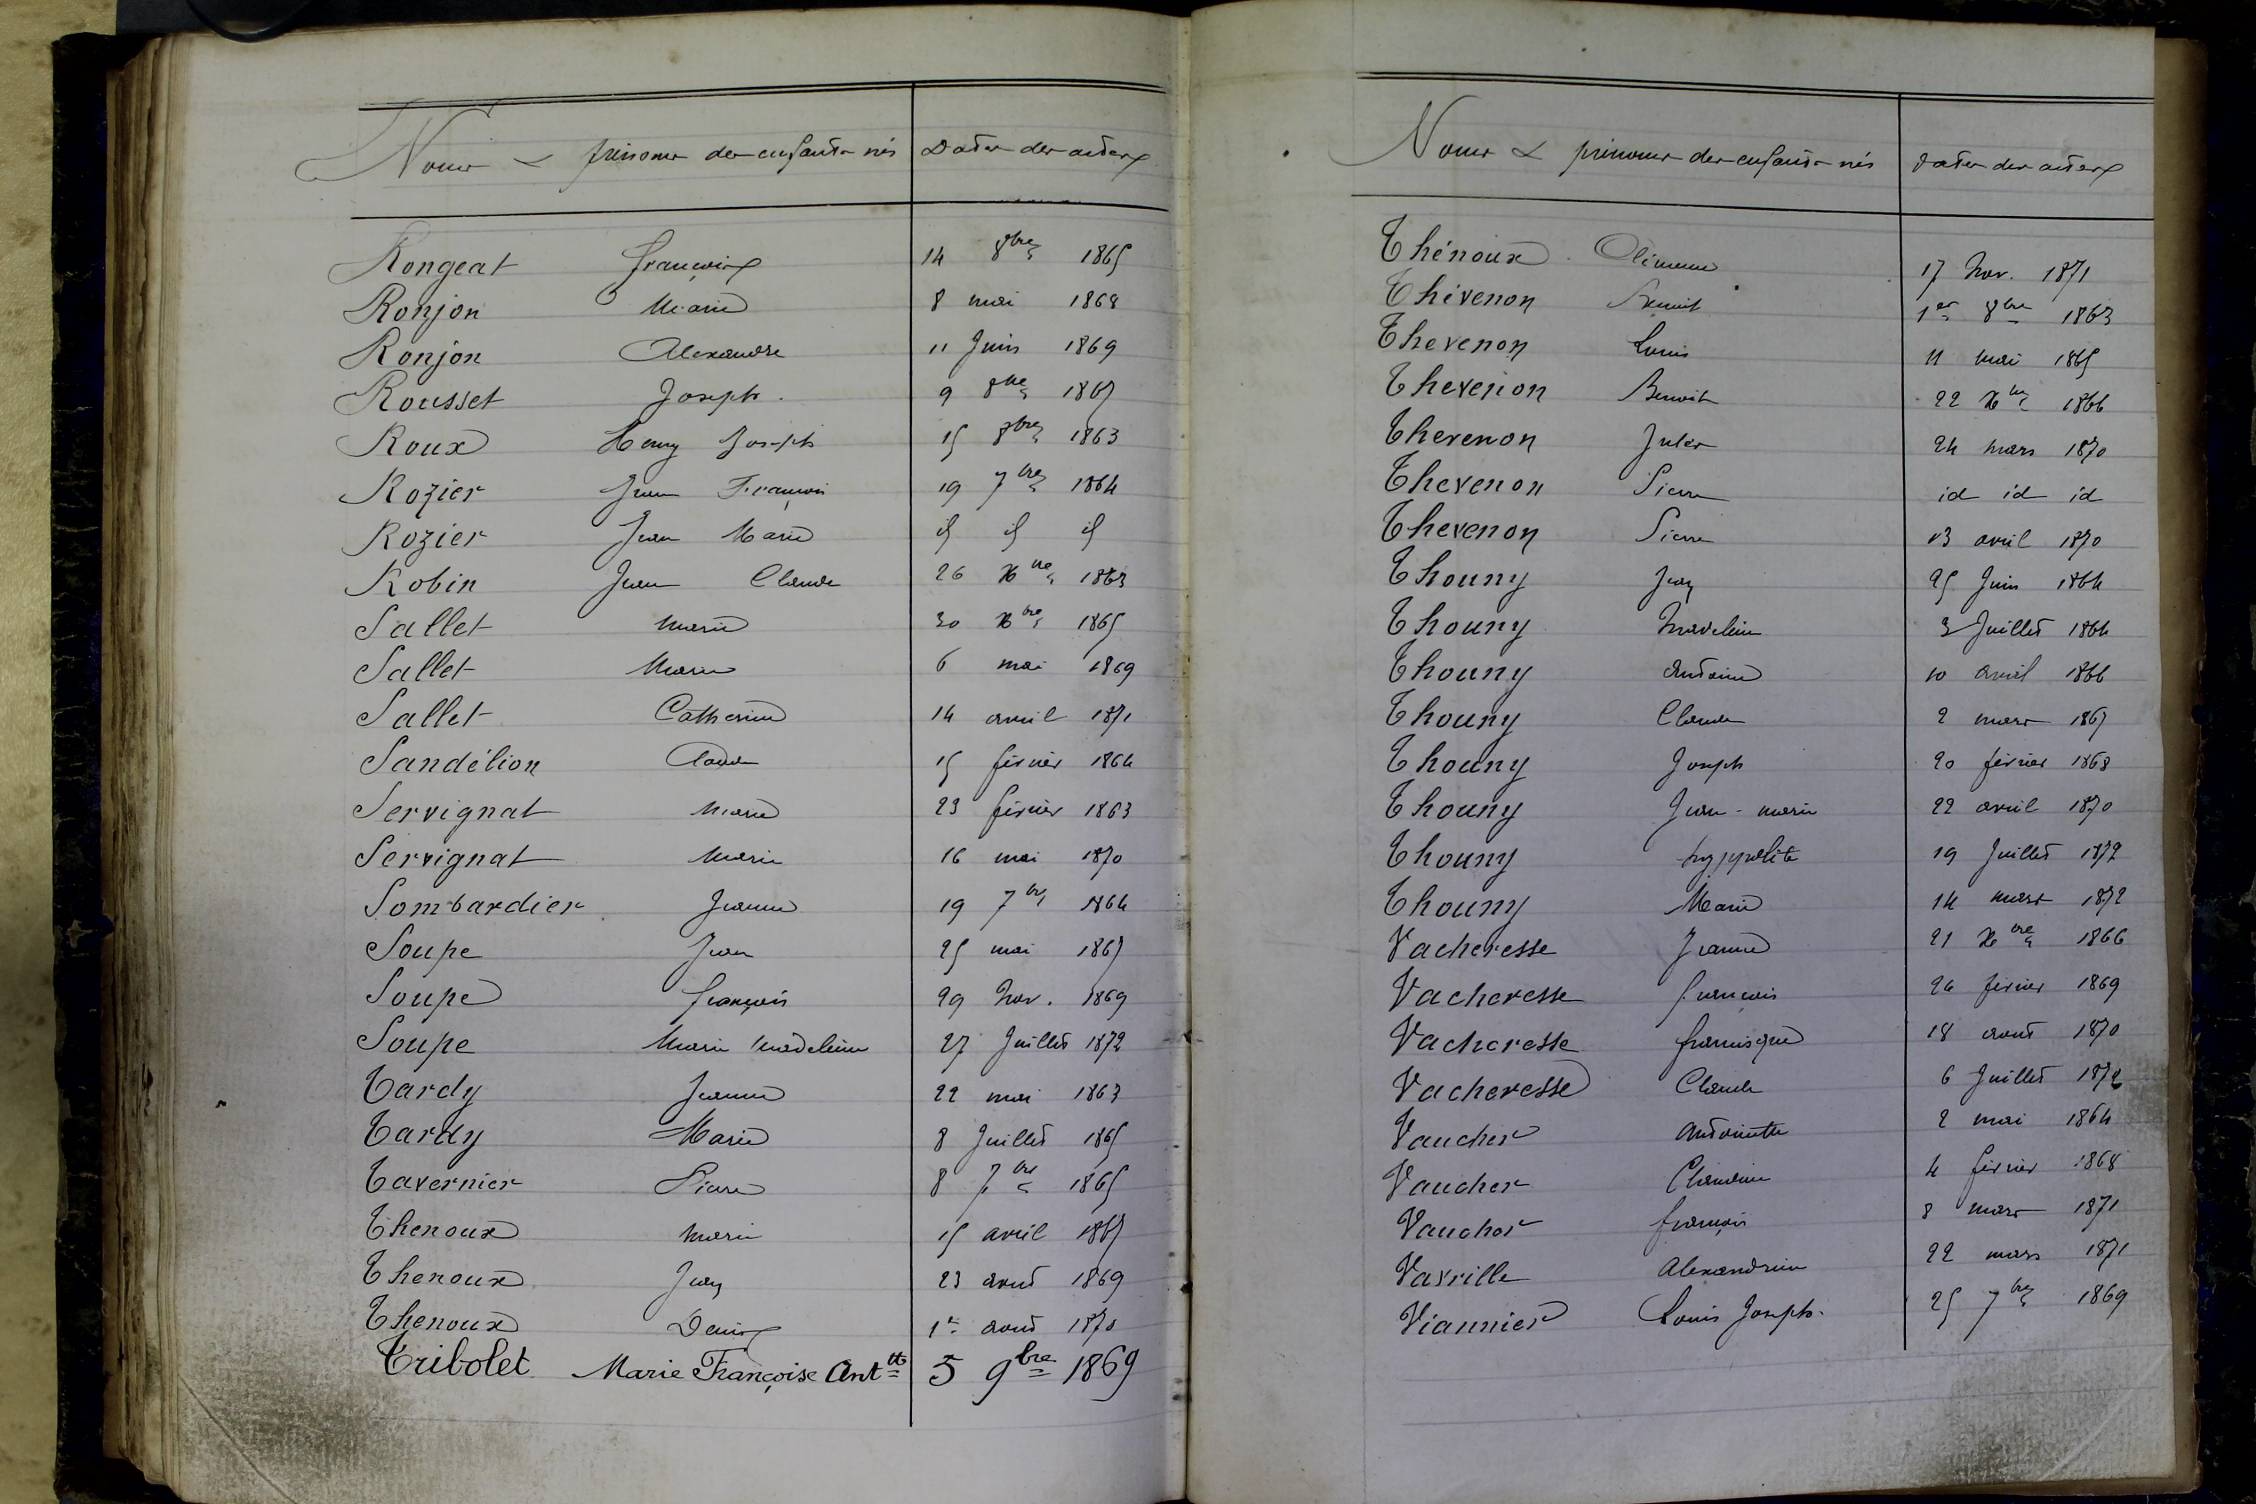 Noms & prénoms des enfants nés Dates des actes
Rongeat François 14 8bre 1865
Ronjon Marie 8 mai 1868
Ronjon Alexandre 11 Juin 1869
Rousset Joseph. 9 8bre 1867
Roux Henry Joseph 15 8bre 1863
Rozier Jean François 19 7bre 1864
Rozier Jean Marie id id id
Robin Jean Claude 26 Xbre 1863
Sallet Marie 30 Xbre 1865
Sallet Marie 6 mai 1869
Sallet Catherine 14 avril 1871
Sandélion Claude 15 février 1864
Servignat Marie 23 février 1863
Servignat Marie 16 mai 1870
Sombardier Jeanne 19 7bre 1864
Soupe Jean 25 mai 1867
Soupe françois 29 Nov. 1869
Soupe Marie Madeleine 27 Juillet 1872
Tardy Jeanne 22 mai 1863
Tardy Marie 8 Juillet 1865
Tavernier Pierre 8 7bre 1865
Thenoux Marie 15 avril 1867
Thenoux Jean 23 août 1869
Thenoux Denis 1er août 1870
Tribolet Marie Françoise Antte 5 9bre 1869
Noms & prénoms des enfants nés dates des actes
Thénoux 17 Nov. 1871
Thévenon Benoit 1er 8bre 1863
Thevenon Louis 11 mai 1865
Thevenon Benoit 22 Xbre 1866
Thevenon Jules 24 mars 1870
Thevenon Pierre id id id
Thevenon Pierre 13 avril 1870
Thouny Jean 25 Juin 1864
Thouny Madeleine 3 Juillet 1864
Thouny Antoine 10 avril 1866
Thouny Claude 2 mars 1867
Thouny Joseph 20 février 1868
Thouny Jean-marie 22 avril 1870
Thouny hyppolite 19 Juillet 1872
Thouny Marie 14 mars 1872
Vacheresse Jeanne 21 Xbre 1866
Vacheresse françois 26 février 1869
Vacheresse francisque 18 août 1870
Vacheresse Claude 6 Juillet 1872
Vaucher Antoinette 2 mai 1864
Vaucher Claudine 4 février 1868
Vaucher françois 8 mars 1871
Vavrille Alexandrine 22 mars 1871
Viannier Louis Joseph. 25 7bre 1869